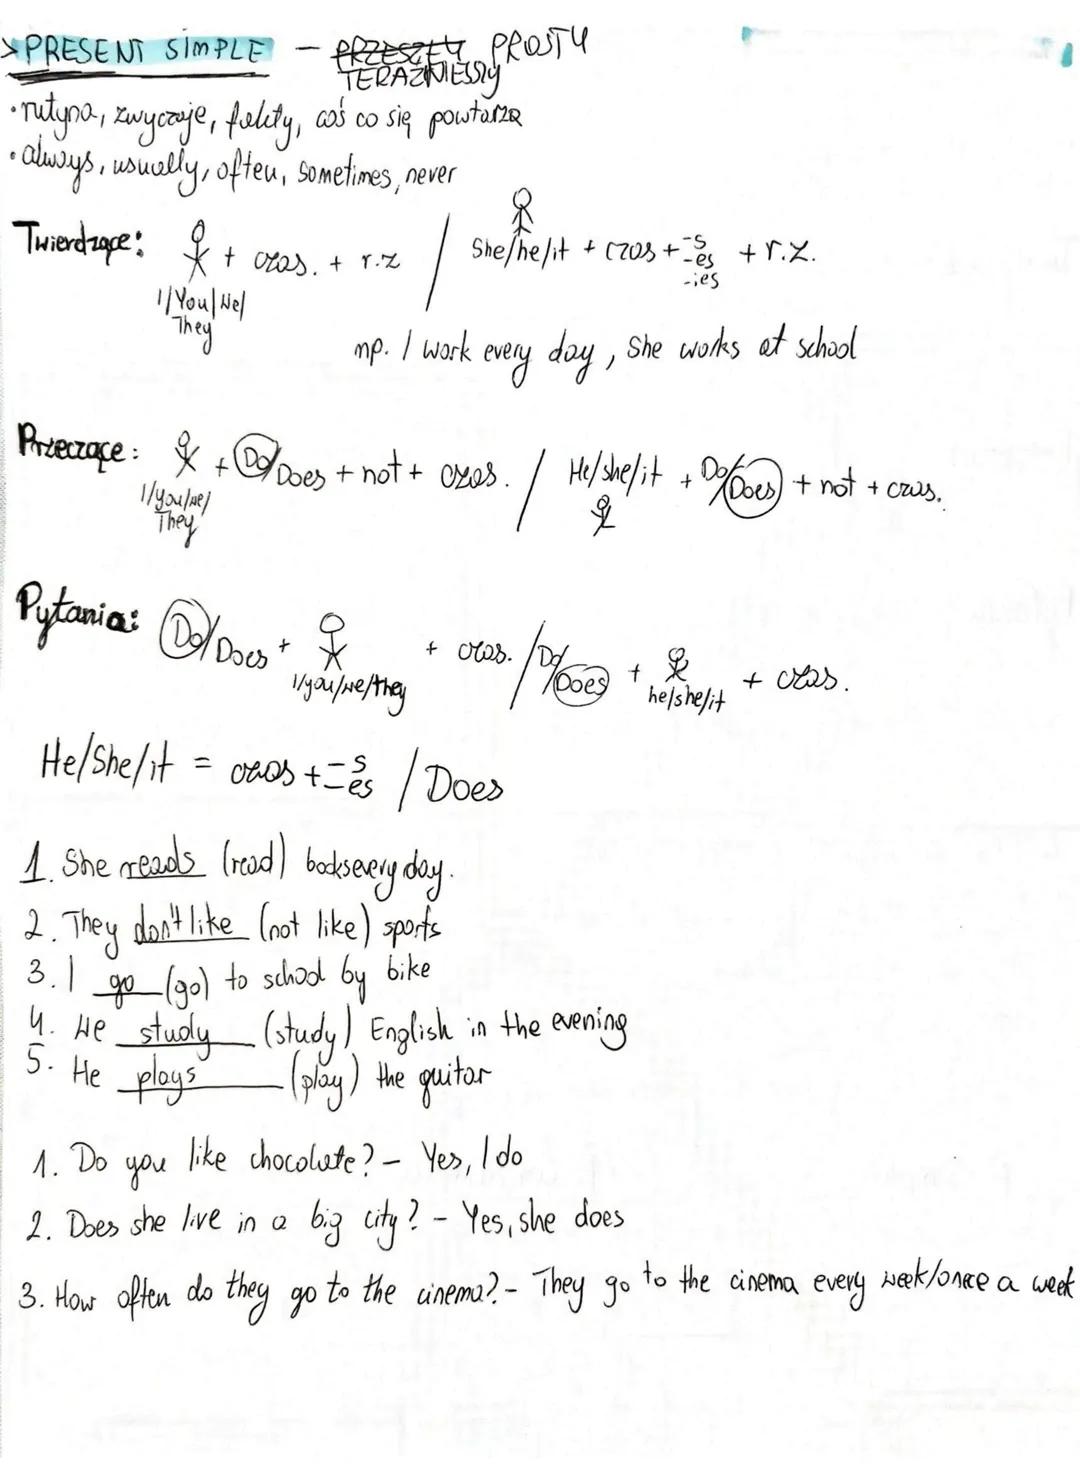 >PRESENT SIMPLE - PRZESZŁY PROSTY
TERAZNIESZY
• rutyna, zwyczaje, fakty, coś co się powtarza
• always, usually, often, sometimes, never
Twierdzące: + czas. + r.z / She/he/it + czas + -s -es -ies + r.z.
I/You/We/
They
np. I work every day, She works at school
Przeczące: + Do/Does + not + czas. / He/she/it + Do/Does + not + czas.
I/you/we/
They
Pytania: Do/Does + + czas. / Do/Does + + czas.
I/you/we/they he/she/it
He/She/it = czas + -s -es / Does
1. She reads (read) books every day.
2. They don't like (not like) sports
3. I go (go) to school by bike
4. We study (study) English in the evening
5. He plays (play) the guitar
1. Do you like chocolate? - Yes, I do
2. Does she live in a big city? - Yes, she does
3. How often do they go to the cinema? - They go to the cinema every week/once a week